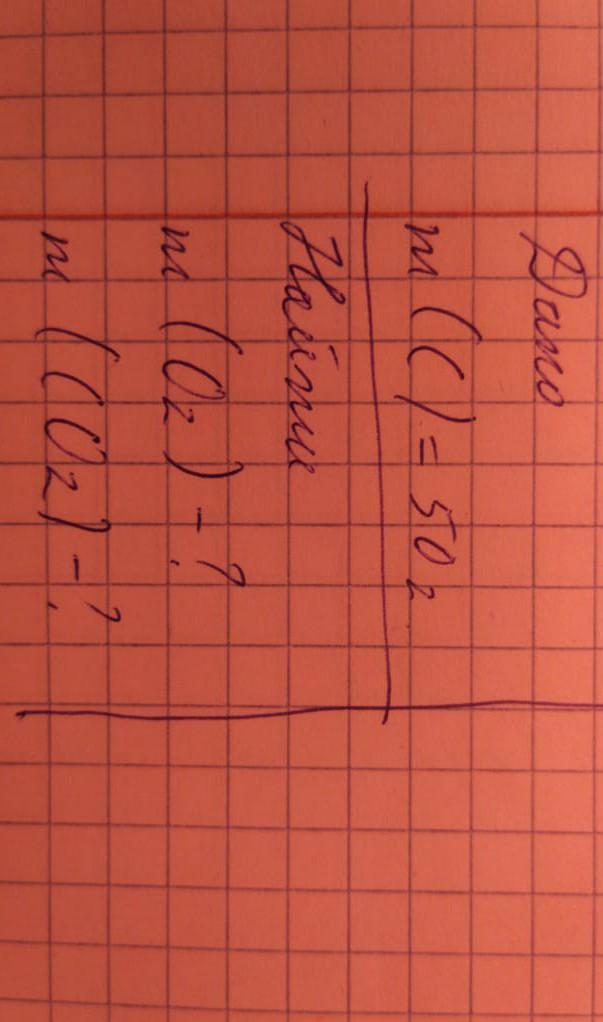 Дано
m (C) = 50 г
Найти
m (O₂) - ?
m (CO₂) - ?